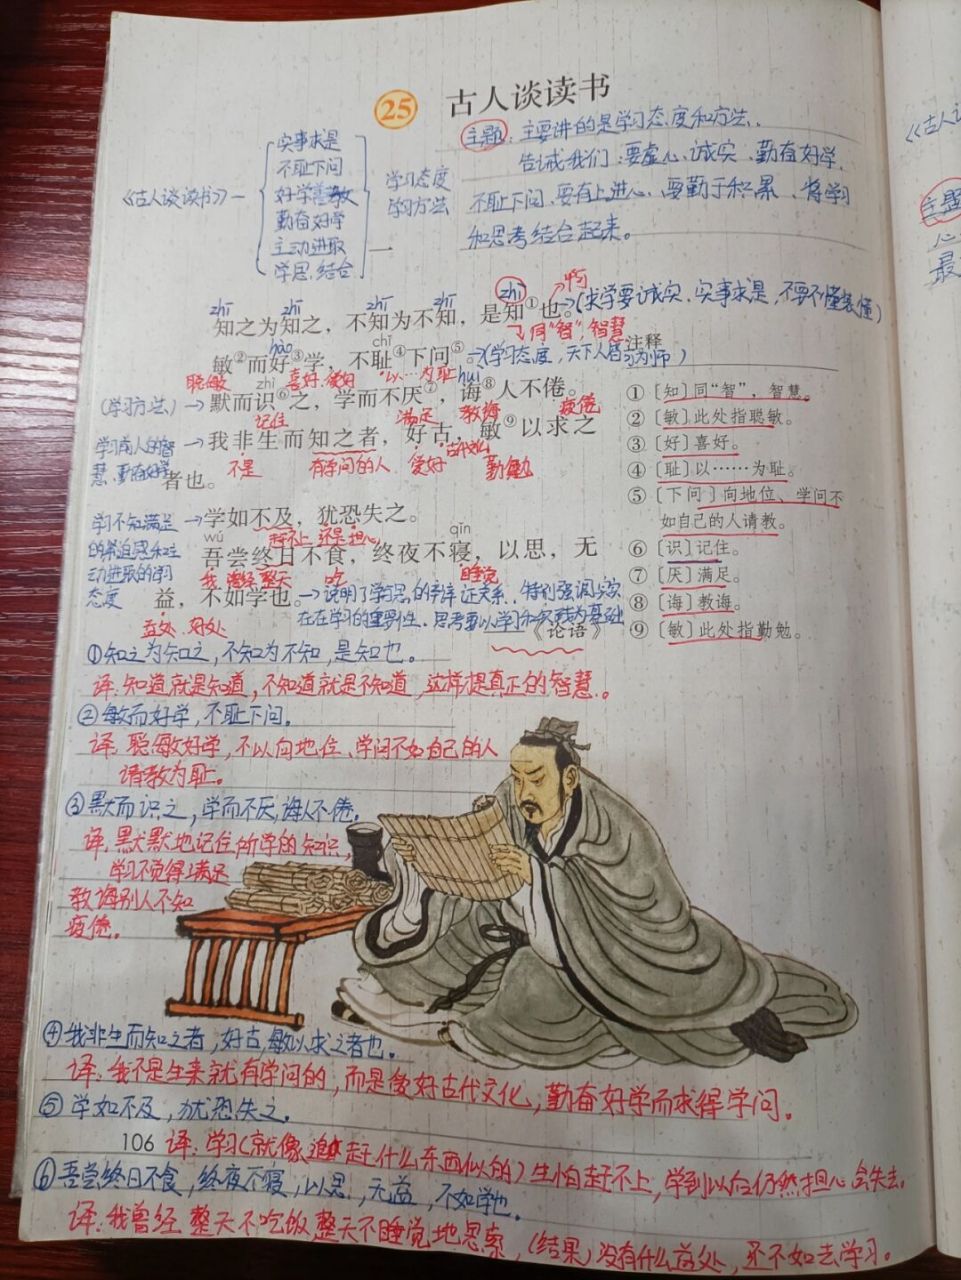 25 古人谈读书
主题:主要讲的是学习态度和方法.
告诫我们:要虚心、诚实、勤奋好学,
不耻下问.要有上进心、要勤于积累、将学习
和思考结合起来。
《古人谈读书》—
实事求是
不耻下问
好学善敏
勤奋好学
主动进取
学思结合
学习态度
学习方法
zhī zhī zhī zhī zhì 啊
知之为知之,不知为不知,是知①也。(求学要诚实、实事求是,不要不懂装懂)
同"智",智慧
hào chǐ
敏②而好③学,不耻④下问⑤。(学习态度,天下人皆可为师)
聪敏 zhì 喜好、爱好 以……为耻 huì
(学习方法)→默而识⑥之,学而不厌⑦,诲⑧人不倦。
记住 满足 教诲 疲倦
学习前人的智
慧,勤奋好学
→我非生而知之者,好古,敏⑨以求之
不是 有学问的人 爱好 古代文化 勤勉
者也。
学习不知满足
的紧迫感和主
动进取的学习
态度
→学如不及,犹恐失之。
赶不上 还是 担心
wú qǐn
吾尝终日不食,终夜不寝,以思,无
我 曾经 整天 吃 睡觉
益,不如学也。→说明了学与思的辩证关系、特别强调实实
益处、好处 在在学习的重要性、思考要以学习和实践为基础
《论语》
注释
① 〔知〕同“智”,智慧。
② 〔敏〕此处指聪敏。
③ 〔好〕喜好。
④ 〔耻〕以……为耻。
⑤ 〔下问〕向地位、学问不
如自己的人请教。
⑥ 〔识〕记住。
⑦ 〔厌〕满足。
⑧ 〔诲〕教诲。
⑨ 〔敏〕此处指勤勉。
①知之为知之,不知为不知,是知也。
译:知道就是知道,不知道就是不知道,这样才是真正的智慧。
②敏而好学,不耻下问。
译:聪敏好学,不以向地位、学问不如自己的人
请教为耻。
③默而识之,学而不厌,诲人不倦。
译:默默地记住所学的知识,
学习不觉得满足
教诲别人不知
疲倦。
④我非生而知之者,好古,敏以求之者也。
译:我不是生来就有学问的,而是爱好古代文化,勤奋好学而求得学问。
⑤学如不及,犹恐失之。
106 译:学习(就像追赶什么东西似的)生怕赶不上,学到以后仍然担心会失去。
⑥吾尝终日不食,终夜不寝,以思,无益,不如学也。
译:我曾经整天不吃饭整天不睡觉地思索,(结果)没有什么益处,还不如去学习。
《古人谈
主题
心
最